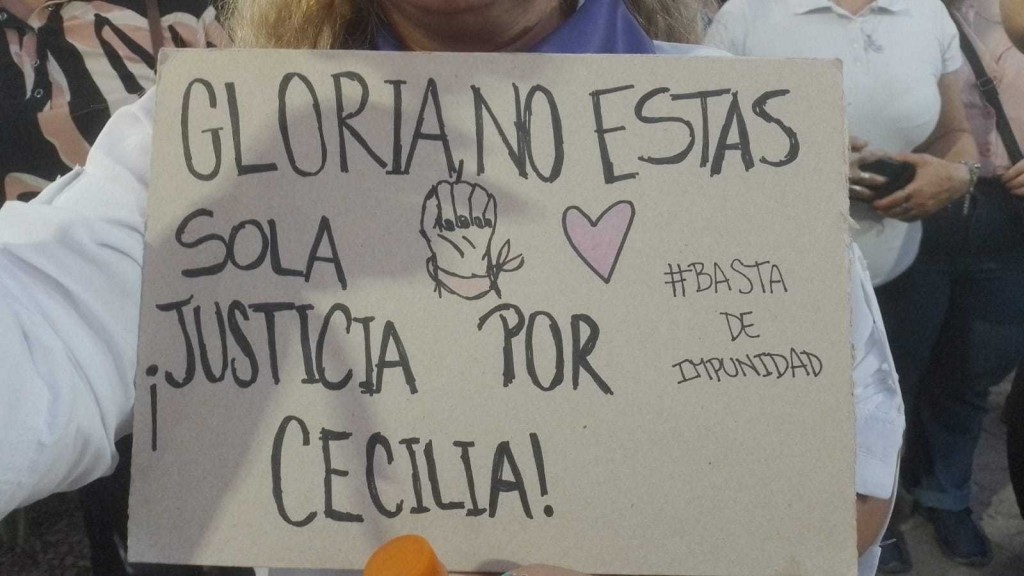 GLORIA, NO ESTAS
SOLA
¡JUSTICIA POR
CECILIA!
#BASTA
DE
IMPUNIDAD